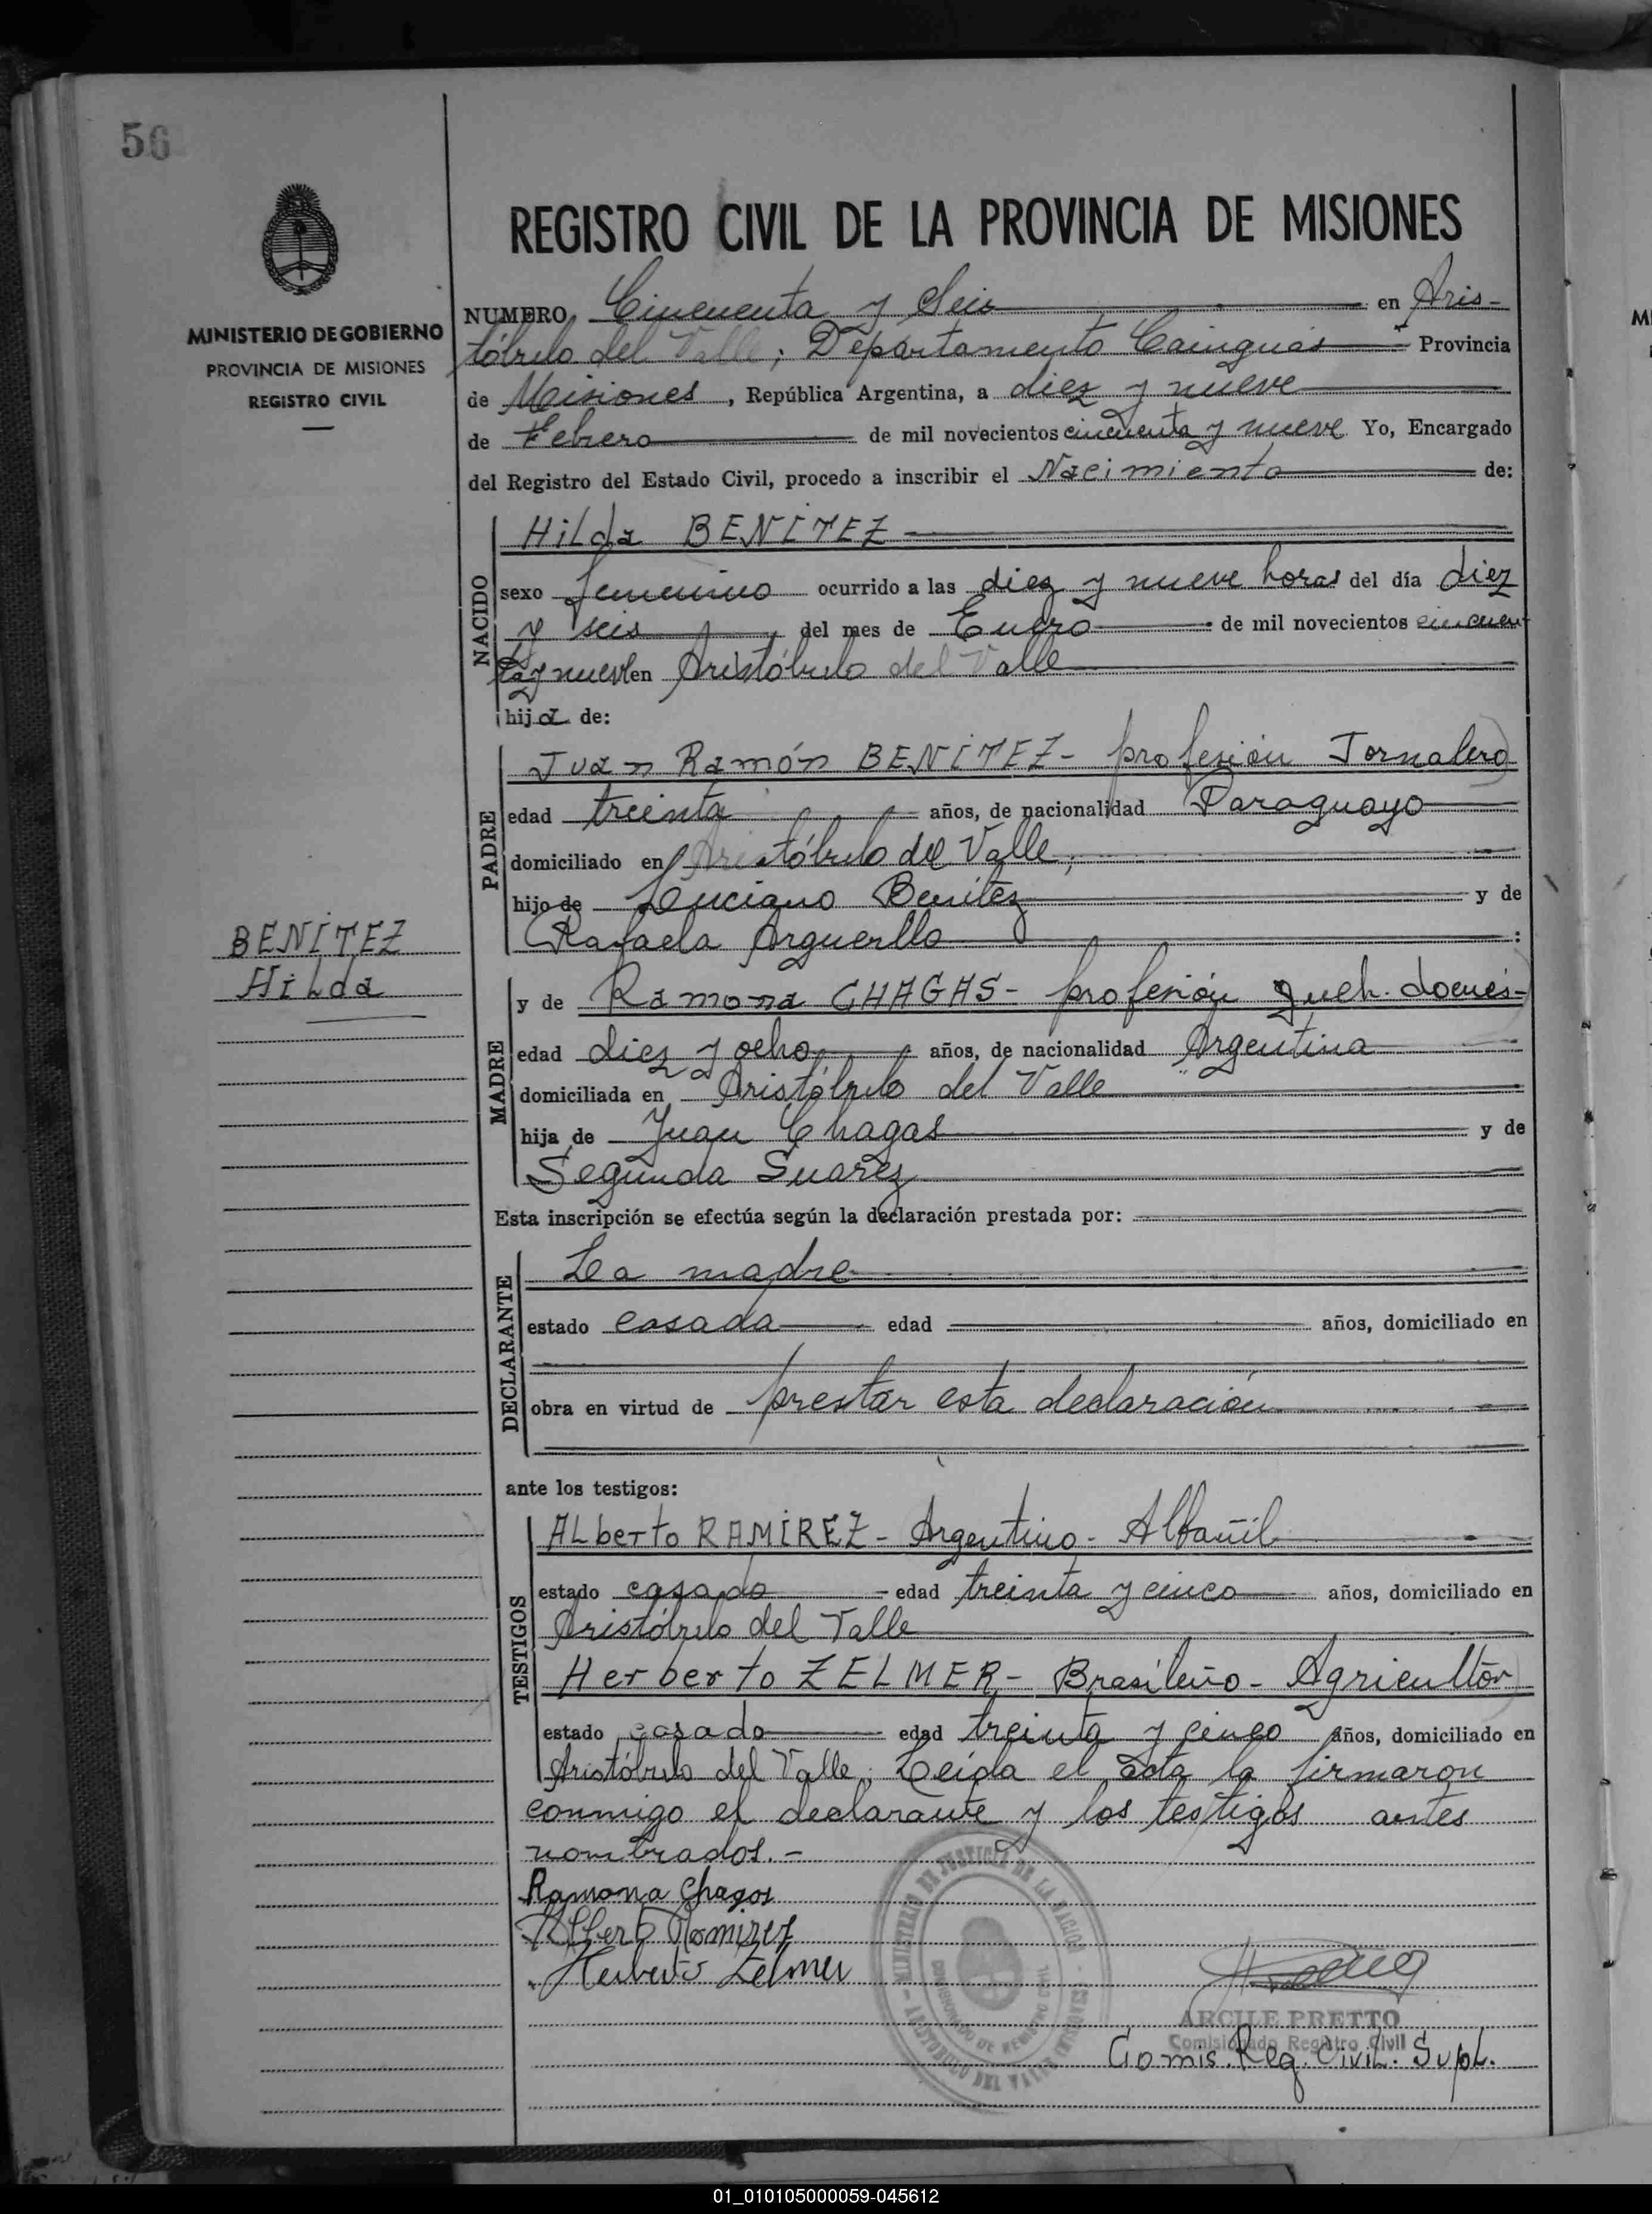 56
MINISTERIO DE GOBIERNO
PROVINCIA DE MISIONES
REGISTRO CIVIL
BENÍTEZ
Hilda
REGISTRO CIVIL DE LA PROVINCIA DE MISIONES
NUMERO Cincuenta y Seis en Aris-
tóbulo del Valle; Departamento Cainguás Provincia
de Misiones, República Argentina, a diez y nueve
de Febrero de mil novecientos cincuenta y nueve Yo, Encargado
del Registro del Estado Civil, procedo a inscribir el Nacimiento de:
NACIDO
Hilda BENÍTEZ
sexo femenino ocurrido a las diez y nueve horas del día diez
y seis del mes de Enero de mil novecientos cincuen
ta y nueve en Aristóbulo del Valle
hija de:
PADRE
Juan Ramón BENÍTEZ- profesión Jornalero
edad treinta años, de nacionalidad Paraguayo
domiciliado en Aristóbulo del Valle,
hijo de Luciano Benítez y de
Rafaela Arguello :
MADRE
y de Ramona CHAGAS- profesión queh. domés-
edad diez y ocho años, de nacionalidad Argentina
domiciliada en Aristóbulo del Valle
hija de Juan Chagas y de
Segunda Suarez
Esta inscripción se efectúa según la declaración prestada por:
DECLARANTE
La madre
estado casada edad años, domiciliado en
obra en virtud de prestar esta declaración
ante los testigos:
TESTIGOS
ALberto RAMÍREZ- Argentino- Albañil
estado casado edad treinta y cinco años, domiciliado en
Aristóbulo del Valle
Herberto ZELMER- Brasileño- Agricultor
estado casado edad treinta y cinco años, domiciliado en
Aristóbulo del Valle, Leída el acta la firmaron
conmigo el declarante y los testigos antes
nombrados.-
Ramona Chagas
Alberto Ramirez
Herberto Zelmer
MINISTERIO DE JUSTICIA DE LA NACION
ARISTOBULO DEL VALLE (MISIONES)
ARCILE PRETTO
Comisionado Registro Civil
Comis. Reg. Civil. Supl.
01_010105000059-045612